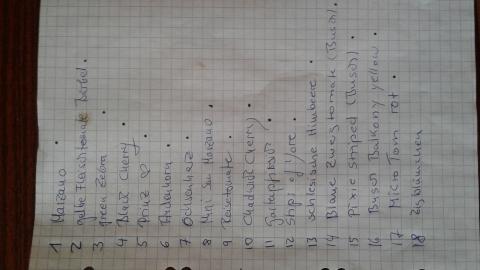 1 Marzano .
2 gelbe Fleischtomate Bärbel .
3 Green Zebra
4 Black Cherry .
5 Prinz
6 .
7 Ochsenherz .
8 Mini San Marzano .
9 Reisetomate .
10 Chadwick Cherry .
11 .
12 Stripes of Yore .
13 schlesische Himbeere .
14 Blaue Zwergtomate (Busch) .
15 Pixie striped (Busch) .
16 Busch Balkony yellow .
17 Micro Tom rot .
18 Eisbläumchen